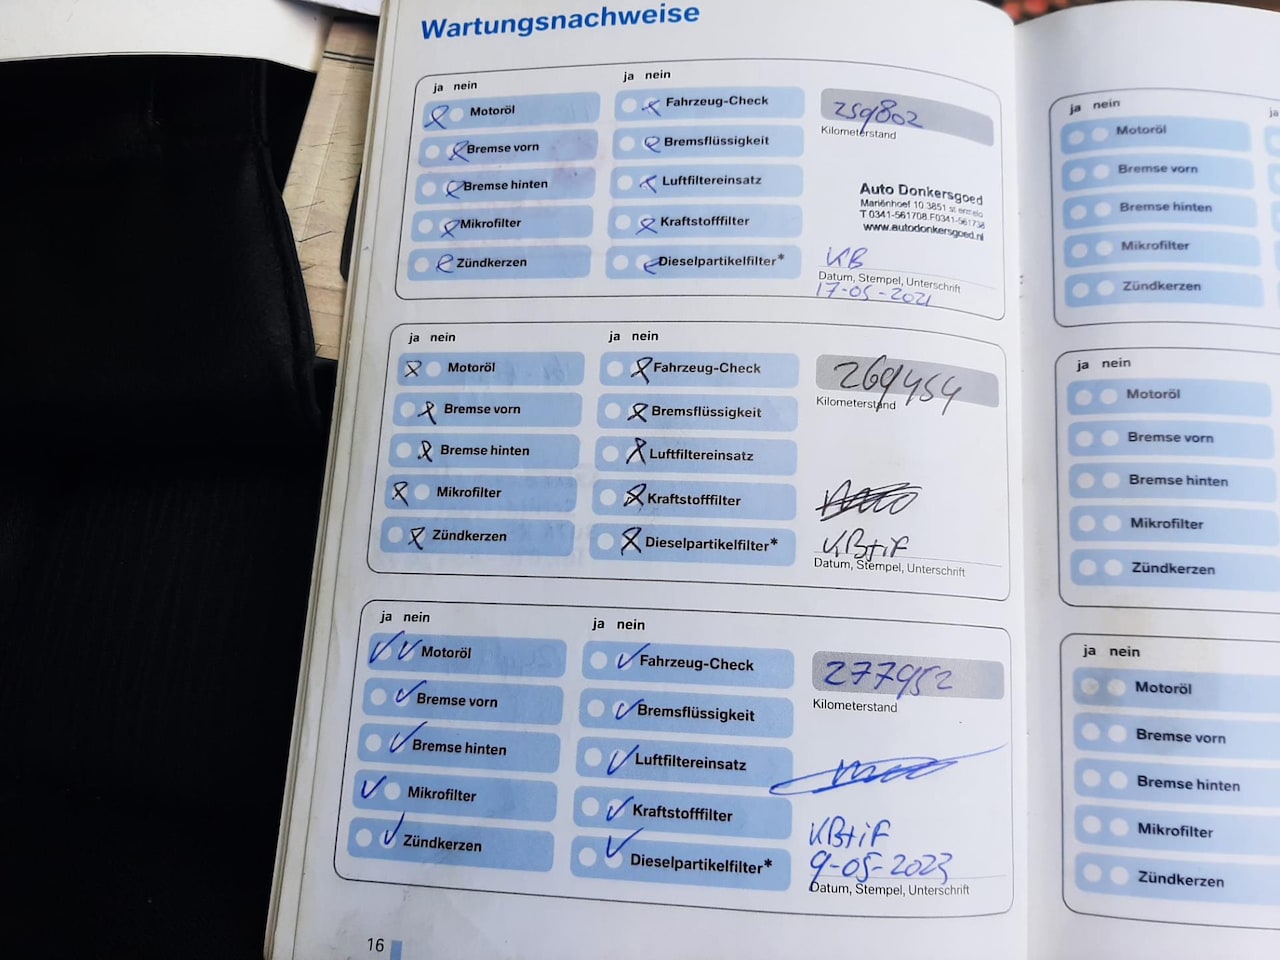 Wartungsnachweise
ja nein
Motoröl
Bremse vorn
Bremse hinten
Mikrofilter
Zündkerzen
ja nein
Fahrzeug-Check
Bremsflüssigkeit
Luftfiltereinsatz
Kraftstofffilter
Dieselpartikelfilter*
259802
Kilometerstand
Auto Donkersgoed
Mariënhoef 10 3851 st ermelo
T 0341-561708 F0341-561738
www.autodonkersgoed.nl
KB
Datum, Stempel, Unterschrift
17-05-2021
ja nein
Motoröl
Bremse vorn
Bremse hinten
Mikrofilter
Zündkerzen
ja nein
Fahrzeug-Check
Bremsflüssigkeit
Luftfiltereinsatz
Kraftstofffilter
Dieselpartikelfilter*
269454
Kilometerstand
KB+iF
Datum, Stempel, Unterschrift
ja nein
Motoröl
Bremse vorn
Bremse hinten
Mikrofilter
Zündkerzen
ja nein
Fahrzeug-Check
Bremsflüssigkeit
Luftfiltereinsatz
Kraftstofffilter
Dieselpartikelfilter*
277952
Kilometerstand
KB+iF
9-05-2023
Datum, Stempel, Unterschrift
16
ja nein
Motoröl
Bremse vorn
Bremse hinten
Mikrofilter
Zündkerzen
ja
ja nein
Motoröl
Bremse vorn
Bremse hinten
Mikrofilter
Zündkerzen
ja nein
Motoröl
Bremse vorn
Bremse hinten
Mikrofilter
Zündkerzen